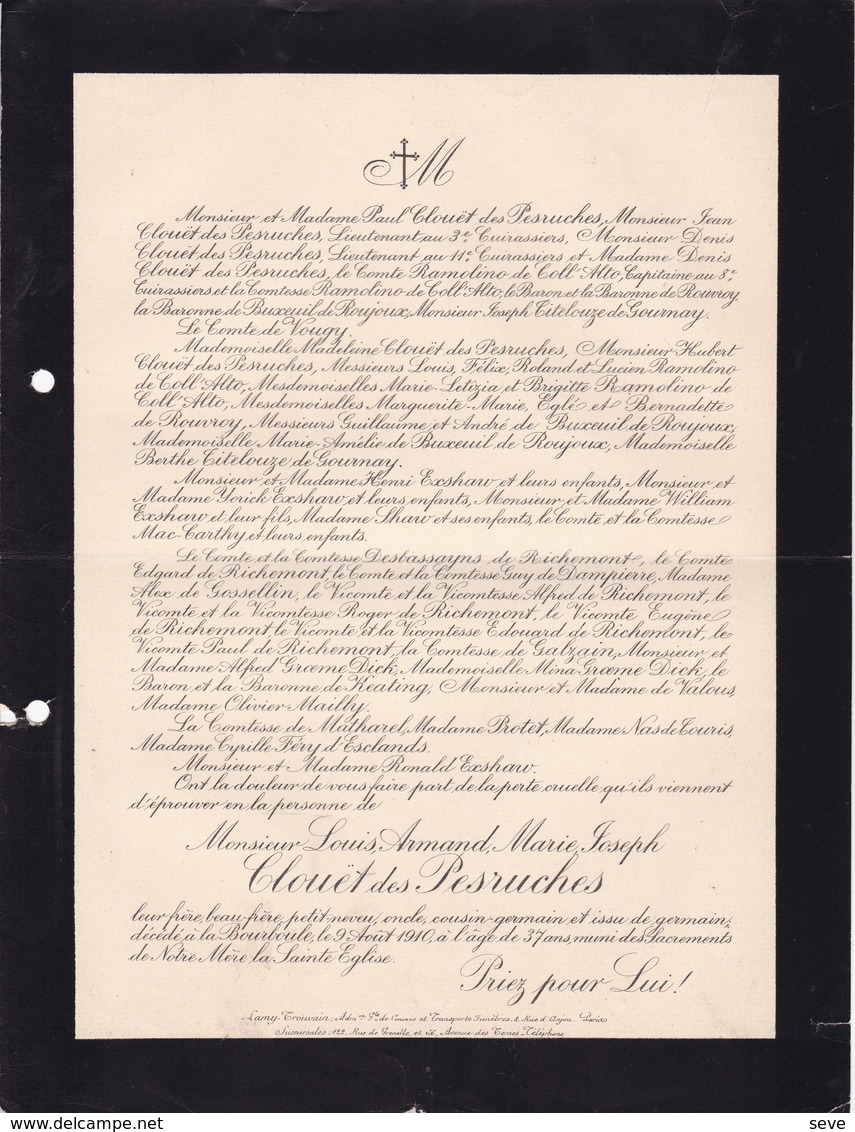 M
Monsieur et Madame Paul Clouët des Pesruches, Monsieur Jean
Clouët des Pesruches, Lieutenant au 3e Cuirassiers, Monsieur Denis
Clouët des Pesruches, Lieutenant au 11e Cuirassiers et Madame Denis
Clouët des Pesruches, le Comte Ramolino de Coll'Alto, Capitaine au 8e
Cuirassiers et la Comtesse Ramolino de Coll'Alto, le Baron et la Baronne de Rouvroy,
la Baronne de Buxeuil de Roujoux, Monsieur Joseph Titelouze de Gournay.
Le Comte de Vougy.
Mademoiselle Madeleine Clouët des Pesruches, Monsieur Hubert
Clouët des Pesruches, Messieurs Louis, Félix, Roland et Lucien Ramolino
de Coll'Alto, Mesdemoiselles Marie-Letizia et Brigitte Ramolino de
Coll'Alto, Mesdemoiselles Marguerite-Marie, Eglé et Bernadette
de Rouvroy, Messieurs Guillaume et André de Buxeuil de Roujoux,
Mademoiselle Marie-Amélie de Buxeuil de Roujoux, Mademoiselle
Berthe Titelouze de Gournay.
Monsieur et Madame Henri Exshaw et leurs enfants, Monsieur et
Madame Yorick Exshaw et leurs enfants, Monsieur et Madame William
Exshaw et leur fils, Madame Shaw et ses enfants, le Comte et la Comtesse
Mac-Carthy et leurs enfants.
Le Comte et la Comtesse Desbassayns de Richemont, le Comte
Edgard de Richemont, le Comte et la Comtesse Guy de Dampierre, Madame
Alex de Gossellin, le Vicomte et la Vicomtesse Alfred de Richemont, le
Vicomte et la Vicomtesse Roger de Richemont, le Vicomte Eugène
de Richemont, le Vicomte et la Vicomtesse Edouard de Richemont, le
Vicomte Paul de Richemont, la Comtesse de Galzain, Monsieur et
Madame Alfred Græme Dick, Mademoiselle Mina Græme Dick, le
Baron et la Baronne de Keating, Monsieur et Madame de Valous,
Madame Olivier Mailly.
La Comtesse de Matharel, Madame Protet, Madame Nas de Touris,
Madame Cyrille Féry d'Esclands.
Monsieur et Madame Ronald Exshaw.
Ont la douleur de vous faire part de la perte cruelle qu'ils viennent
d'éprouver en la personne de
Monsieur Louis, Armand, Marie, Joseph
Clouët des Pesruches
leur frère, beau-frère, petit-neveu, oncle, cousin-germain et issu de germain,
décédé à la Bourboule, le 9 Août 1910, à l'âge de 37 ans, muni des Sacrements
de Notre Mère la Sainte Eglise.
Priez pour Lui!
Lamy-Trouvain; Admon Gle de Convois et Transports Funèbres, 8, Rue d'Anjou _ Paris
Succursales: 122, Rue de Grenelle et 66, Avenue des Ternes_Téléphone
seve